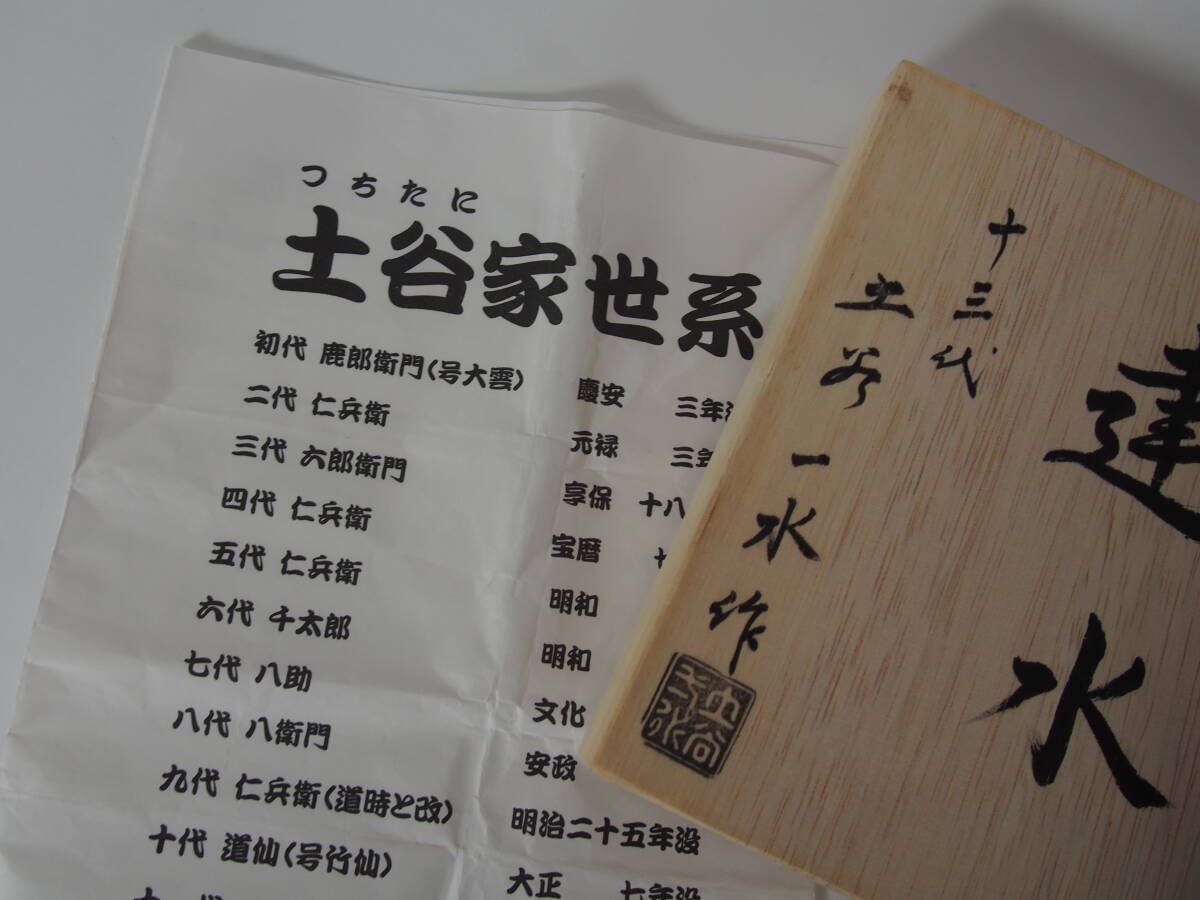 つちたに
土谷家世系
初代 鹿郎衛門(号大雲) 慶安 三年
二代 仁兵衛 元禄 三年
三代 六郎衛門 享保 十八
四代 仁兵衛 宝暦
五代 仁兵衛 明和
六代 千太郎 明和
七代 八助 文化
八代 八衛門 安政
九代 仁兵衛(道時と改) 明治二十五年没
十代 道仙(号竹仙) 大正 七年没
達水
十三代
土谷一水作